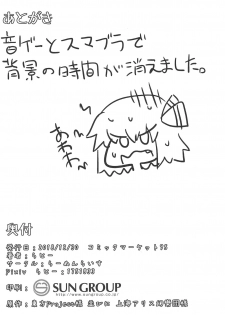 あとがき
音ゲーとスマブラで
背景の時間が消えました。
あわわ
奥付
発行日：2018/12/30 コミックマーケット95
著者：らヒー
サークル：らーめんらいす
Pixiv らヒー：
印刷： SUN GROUP
原作：東方Project様 並びに 上海アリス幻樂団様